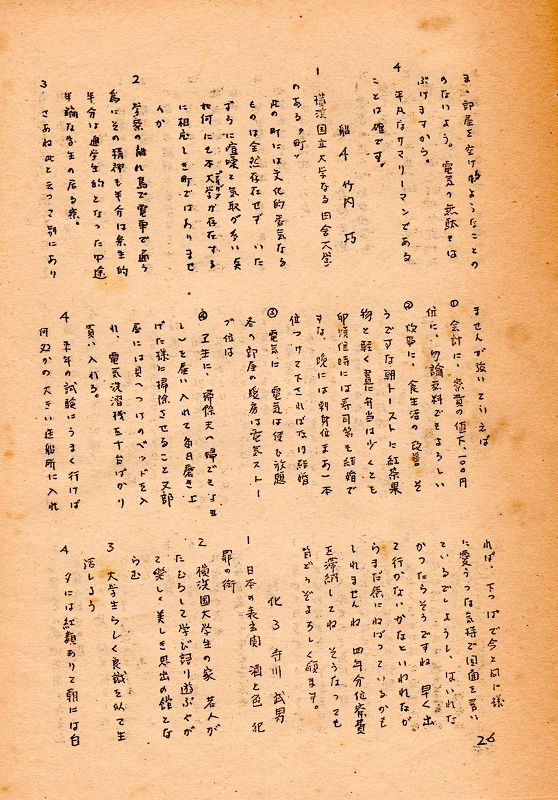 ま、部屋を空けるようなことの
のないよう。電気の無駄をは
ぶけますから。
4 平凡なサラリーマンである
ことは確です。
船4 竹内 巧
1 横浜国立大学なる田舎大学
のある町
此の町には文化的香気なる
ものは全然存在せず いた
ずらに喧噪と気取が多い矣
如何にも本大学が存在する
に相応しき町ではありませ
んか
2 学業の離れ島で電車で通う
為にその精神も半分は寮生的
半分は通学生的となった中途
半端な学生の居る寮。
3 さあねこれと云って別にあり
ませんが強いていえば
① 会計に、寮費の値下、一〇〇円
位に、勿論寮料でもよろしい
② 炊事に、食生活の改善 そ
うですな朝トーストに紅茶果
物と軽く昼に弁当は少くとも
卵焼位時には寿司等も結構で
すな、晩には刺身位まあ一本
位つけて下されば尚結構
③ 電気に 電気は使い放題
各の部屋の暖房は電気ストー
ブ位は
④ 卫生に、掃除夫へ婦でもよろ
し)を雇い入れて毎日磨き上
げた様に掃除させること 又部
屋には具へつけのベッドを入
れ、電気洗濯機を十台ばかり
買い入れる。
4 来年の試験にうまく行けば
何処かの大きい造船所に入れ
れば、下っぱで今と同じ様
に憂うつな気持で図面を書い
ているでしょうし、はいれな
かったらそうですね 早く出
て行かないかなといわれなが
らまだ寮にねばっているかも
しれませんね 四年分位寮費
を滞納してね そうなっても
皆どうぞよろしく頼ます。
化3 寺川 武男
1 日本の表玄関 酒と色 犯
罪の街
2 横浜国大学生の家 若人が
たむろして学び語り遊ぶやが
て楽しく美しき思出の館とな
らむ
3 大学生らしく良識を以て生
活しよう
4 夕には紅顔ありて朝には白
26